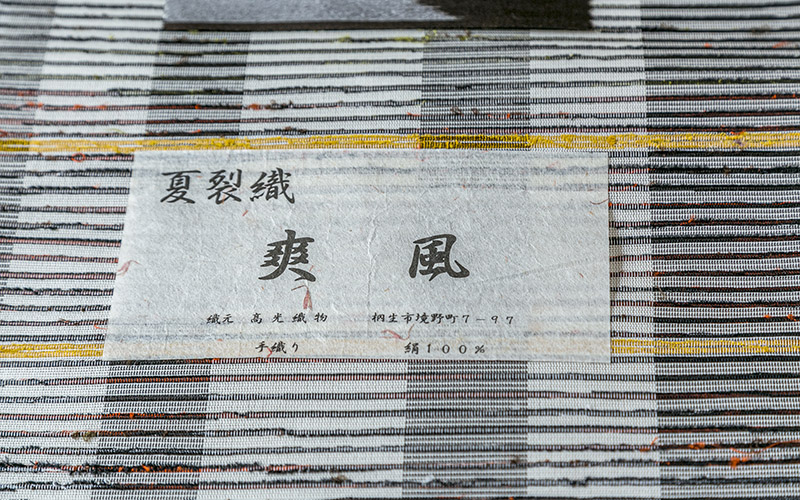 夏裂織
爽 風
織元 高光織物 桐生市境野町7-97
手織り 絹100%